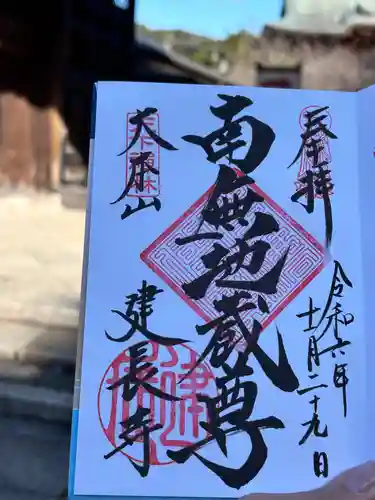 奉拝
令和六年
十一月二十九日
南無地蔵尊
大本山
建長寺